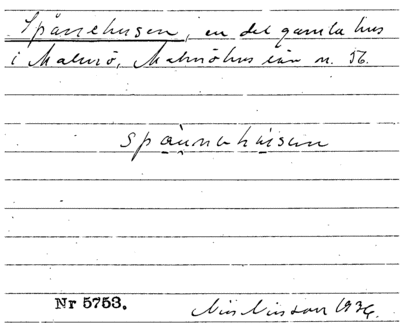 Spånehusen, en del gamla hus
i Malmö, Malmöhus län n. 56.
spåunahúsen
Nr 5753.
Nils Nilsson 1936.